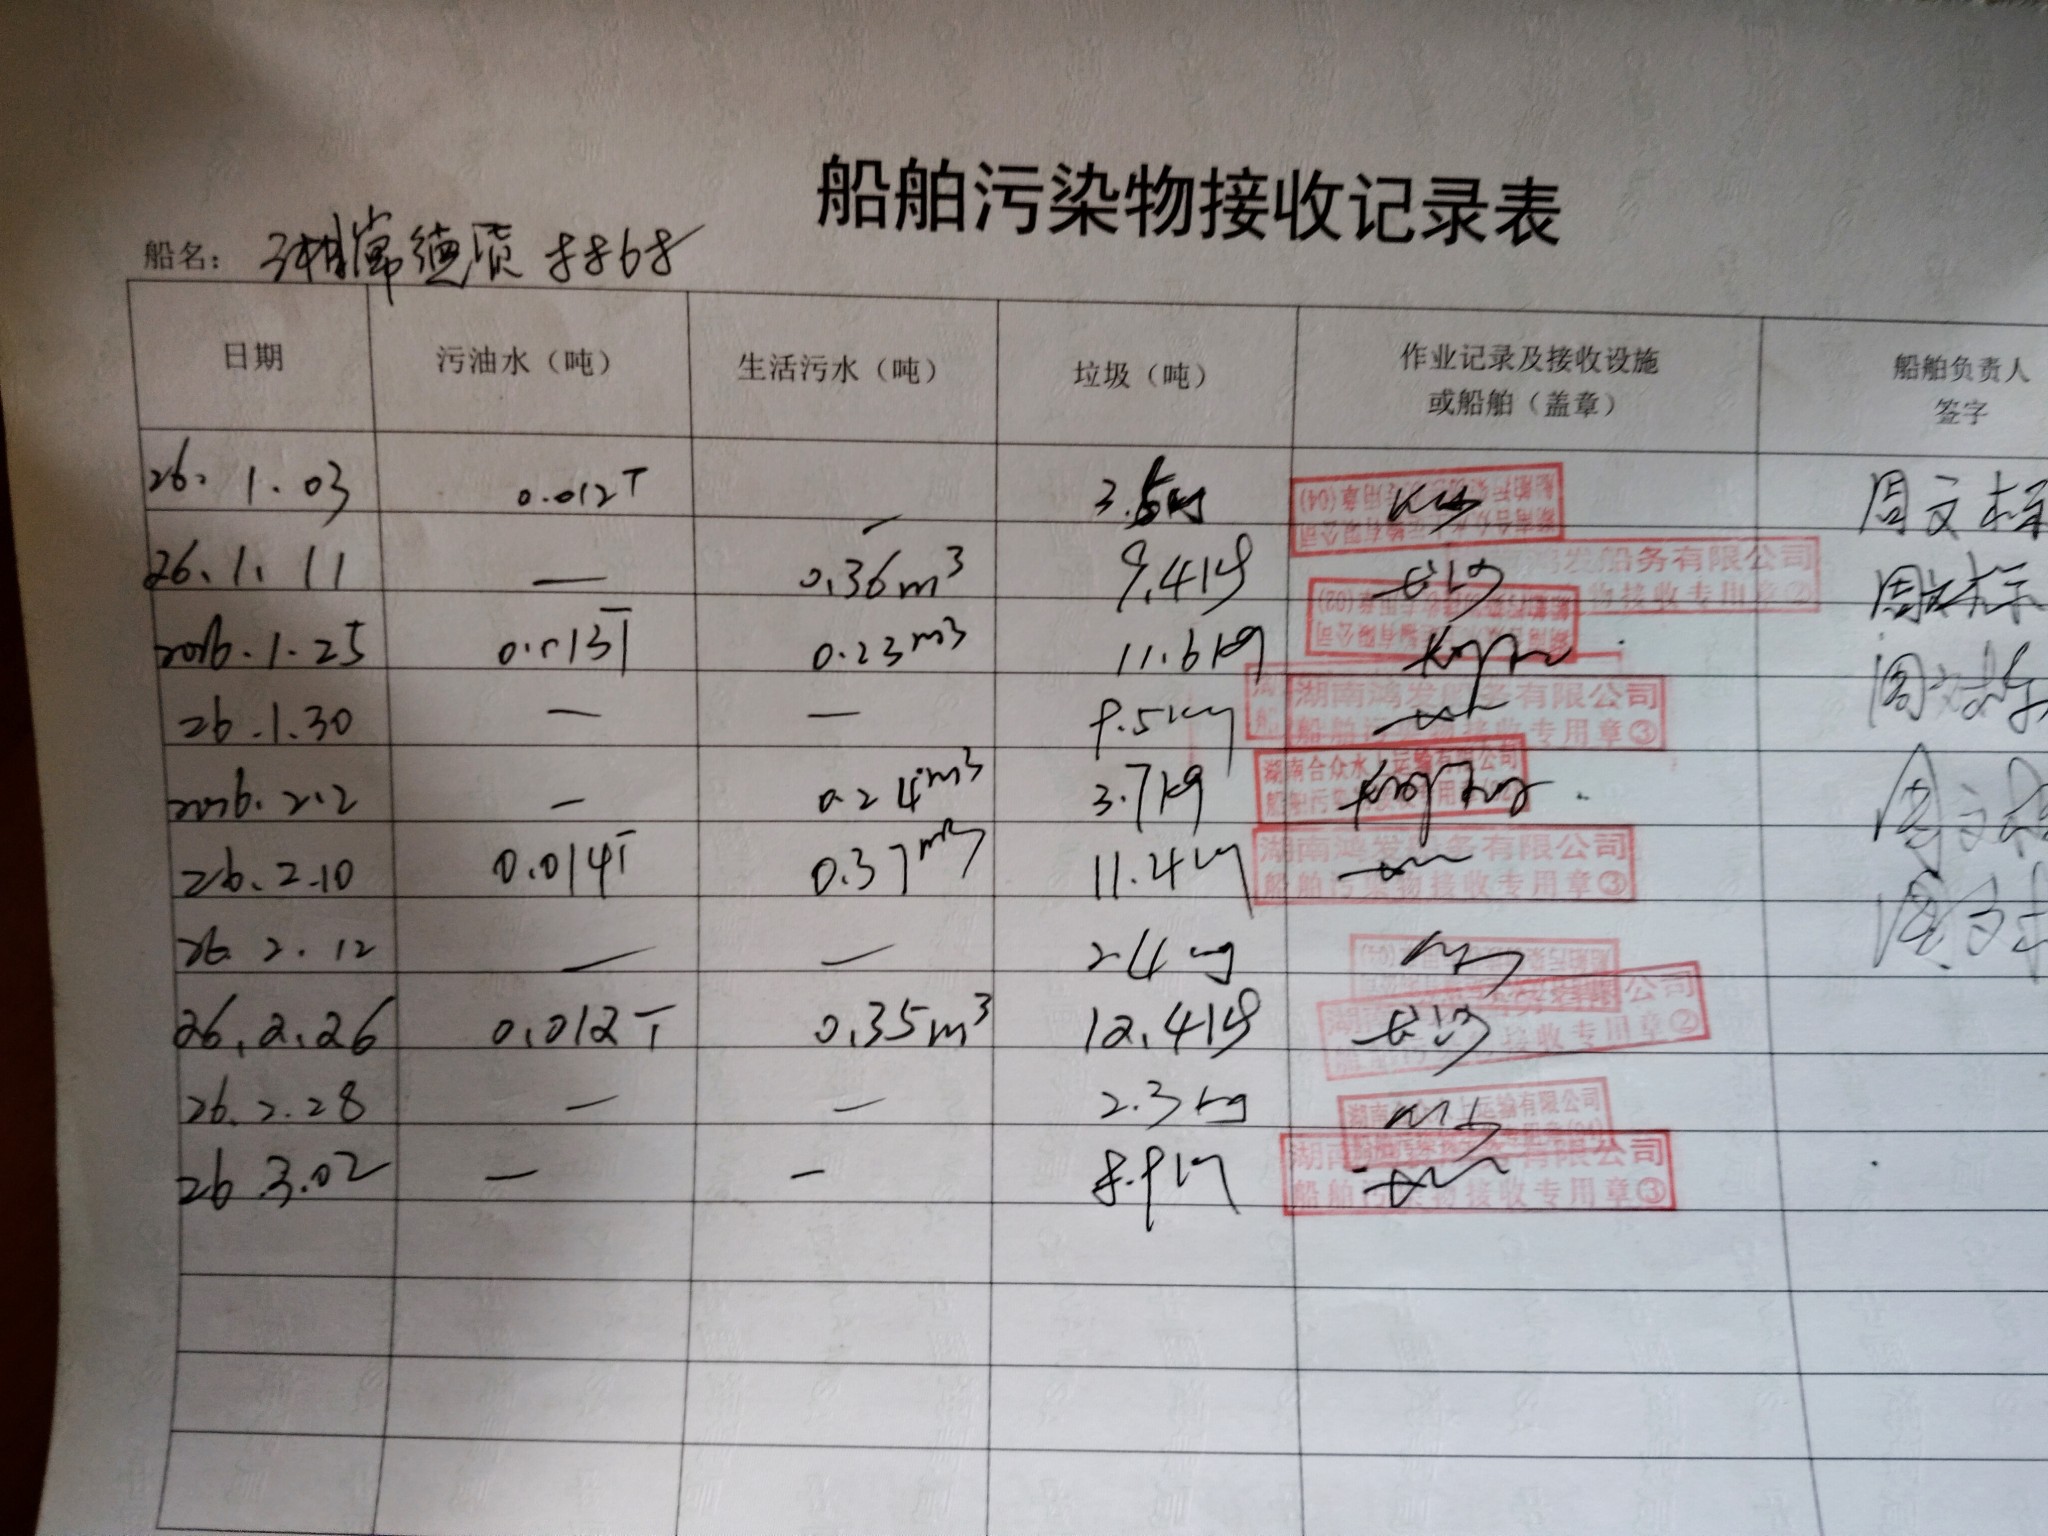 船舶污染物接收记录表
船名： 湘常德货 8868
日期 污油水（吨） 生活污水（吨） 垃圾（吨） 作业记录及接收设施或船舶（盖章） 船舶负责人签字
26. 1.03 0.012T — 3.5kg 周文标
26.1.11 — 0.36m³ 9.4kg 长沙 鸿发船务有限公司 物接收专用章② 周文标
2026.1.25 0.013T 0.23m³ 11.6kg 周文标
26.1.30 — — 9.5kg 湖南鸿发船务有限公司 船舶污染物接收专用章③ 周文标
2026.2.2 — 0.24m³ 3.7kg 湖南合众水上运输有限公司 周文标
26.2.10 0.014T 0.37m³ 11.4kg 湖南鸿发船务有限公司 船舶污染物接收专用章③
26.2.12 — — 2.4kg
26.2.26 0.012T 0.35m³ 12.4kg 长沙 公司 接收专用章②
26.2.28 — — 2.3kg 上运输有限公司
26.3.02 — — 8.9kg 有限公司 船舶污染物接收专用章③